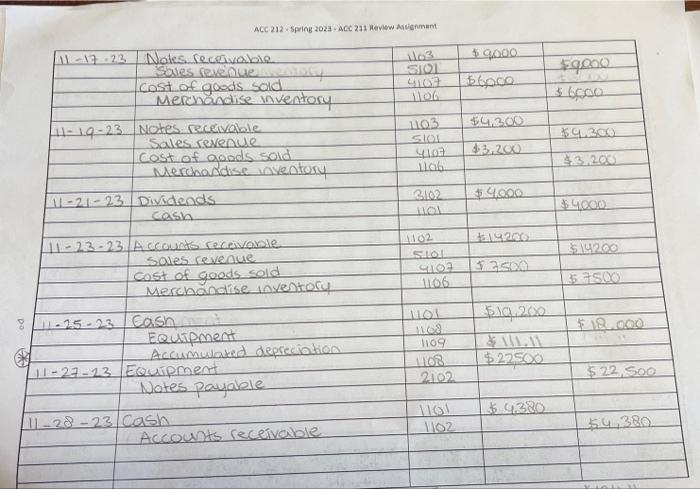 ACC 212 - Spring 2023 - ACC 211 Review Assignment
11-17-23 Notes receivable 1103 $9000
Sales revenue 5101 $9000
Cost of goods sold 4107 $6000
Merchandise inventory 1106 $6000
11-19-23 Notes receivable 1103 $4,300
Sales revenue 5101 $4,300
Cost of goods sold 4107 $3,200
Merchandise inventory 1106 $3,200
11-21-23 Dividends 3102 $4000
Cash 1101 $4000
11-23-23 Accounts receivable 1102 $14200
Sales revenue 5101 $14200
Cost of goods sold 4107 $7500
Merchandise inventory 1106 $7500
11-25-23 Cash 1101 $19,200
Equipment 1108 $18,000
Accumulated depreciation 1109 $111.11
11-27-23 Equipment 1108 $22500
Notes payable 2102 $22,500
11-28-23 Cash 1101 $4,380
Accounts receivable 1102 $4,380